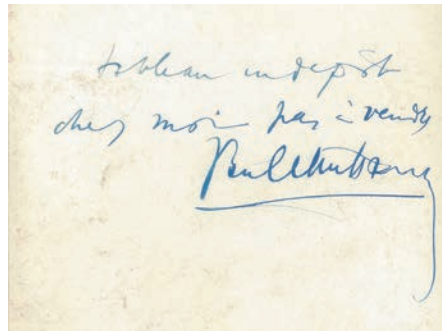 tableau en dépôt
chez moi pas à vendre
Paul